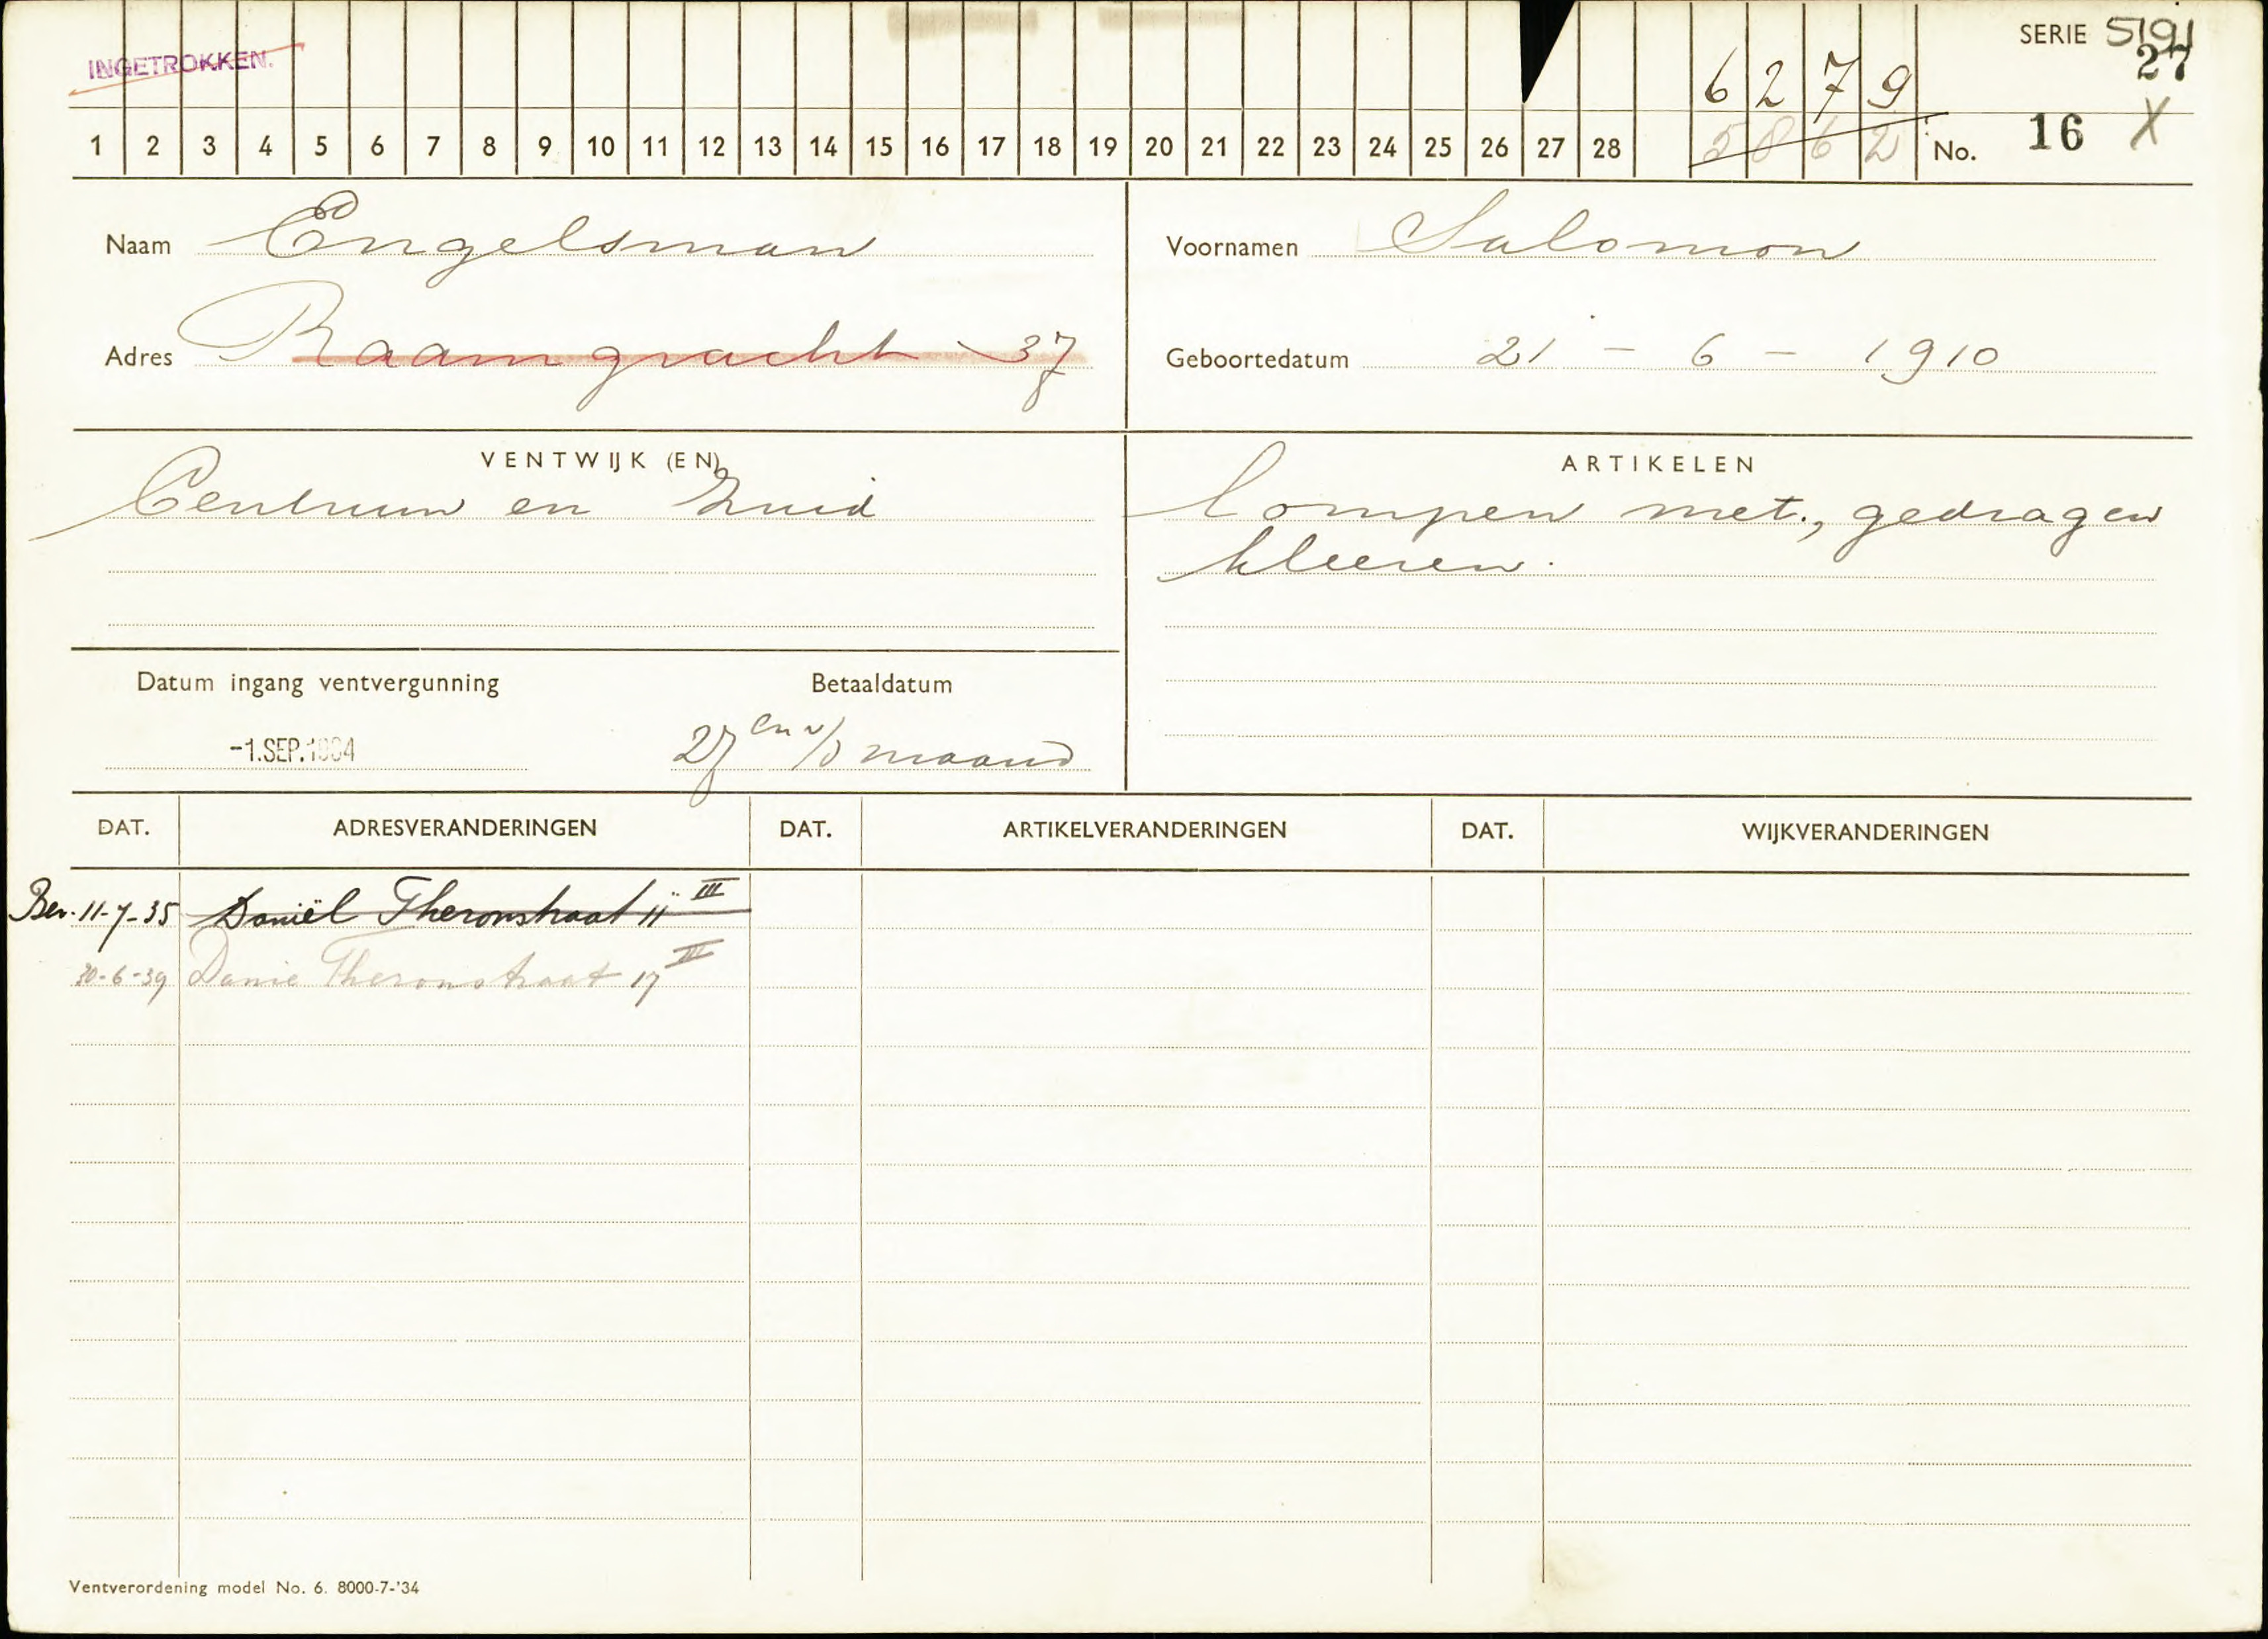 INGETROKKEN.
SERIE 5191
27
6 2 7 9
1 2 3 4 5 6 7 8 9 10 11 12 13 14 15 16 17 18 19 20 21 22 23 24 25 26 27 28 5862 No. 16 X
Naam Engelsman
Voornamen Salomon
Adres Raamgracht 37
Geboortedatum 21 - 6 - 1910
VENTWIJK (EN)
Centrum en Zuid
ARTIKELEN
lompen met., gedragen
kleeren.
Datum ingang ventvergunning Betaaldatum
-1.SEP.1934 27en v/d maand
DAT. ADRESVERANDERINGEN DAT. ARTIKELVERANDERINGEN DAT. WIJKVERANDERINGEN
Ber. 11-7-35 Daniël Theronstraat 11 III
30-6-39 Danie Theronstraat 17 II
Ventverordening model No. 6. 8000-7-'34